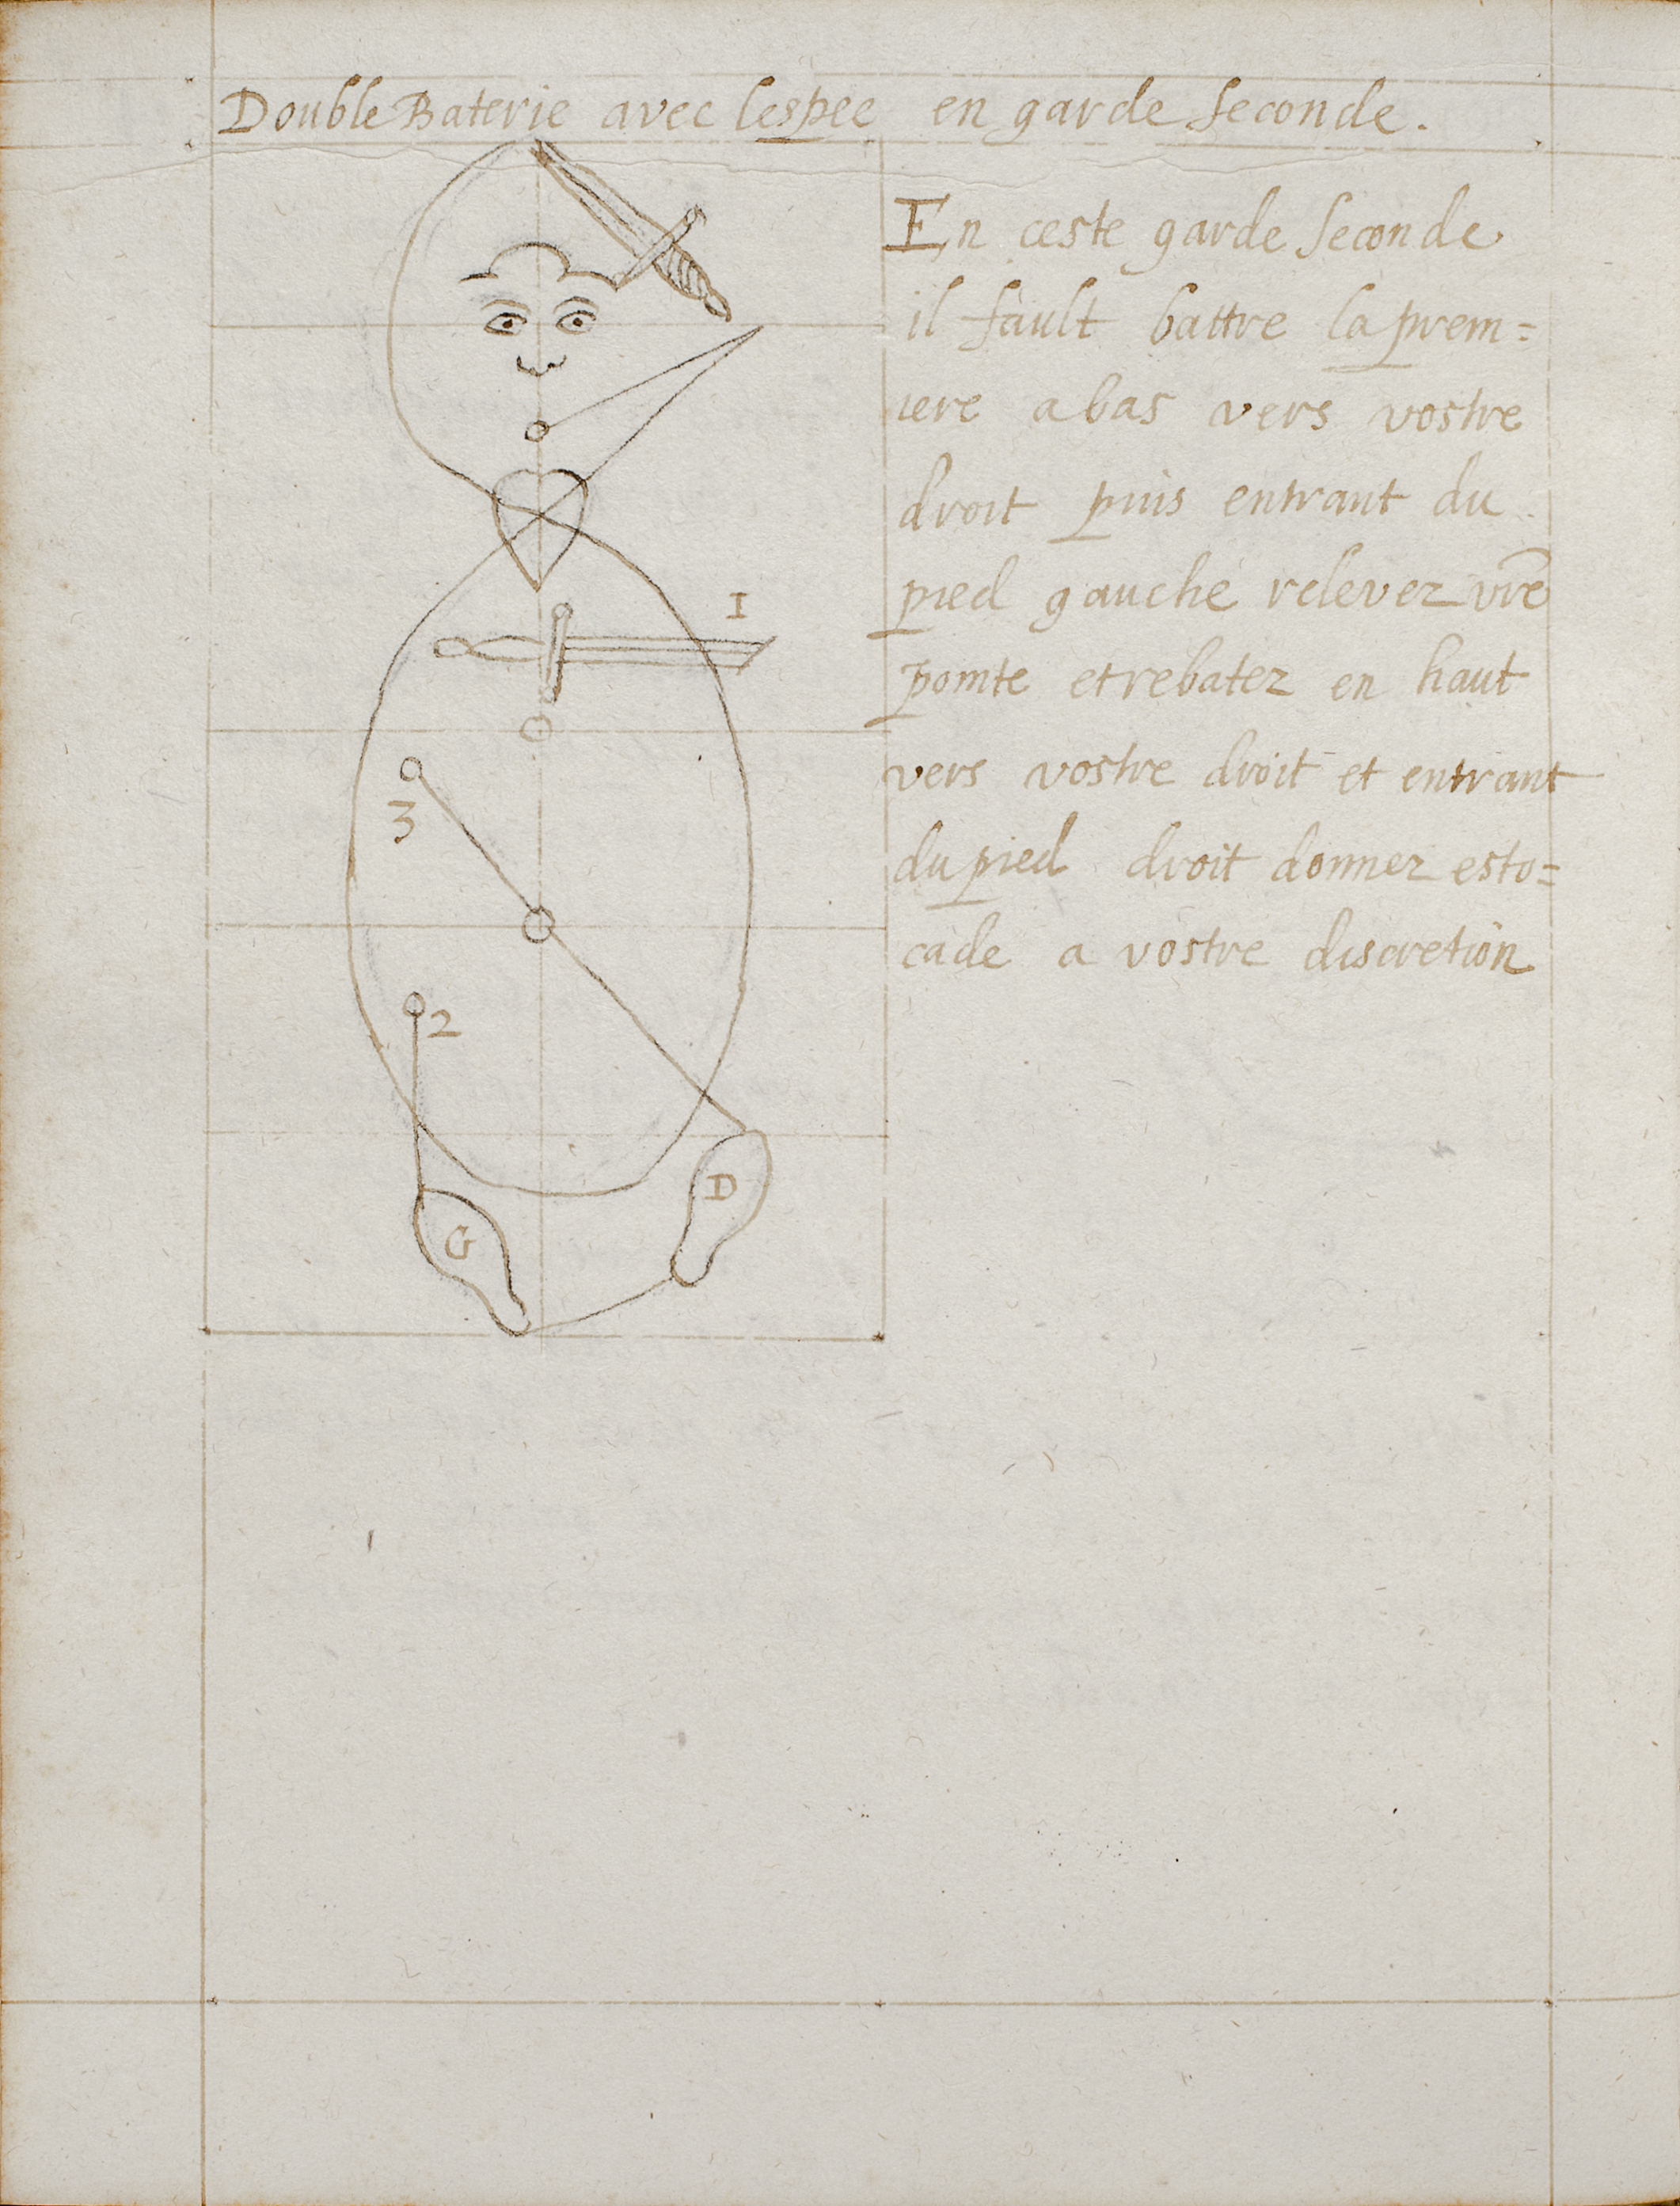 Double Baterie avec lespee en garde seconde.
En ceste garde seconde
il fault battre la prem=
iere abas vers vostre
droit puis entrant du
pied gauche relever vr̃e
pointe et rebatez en haut
vers vostre droit et entrant
du pied droit donnez esto=
cade a vostre discretion
I
3
2
D
G